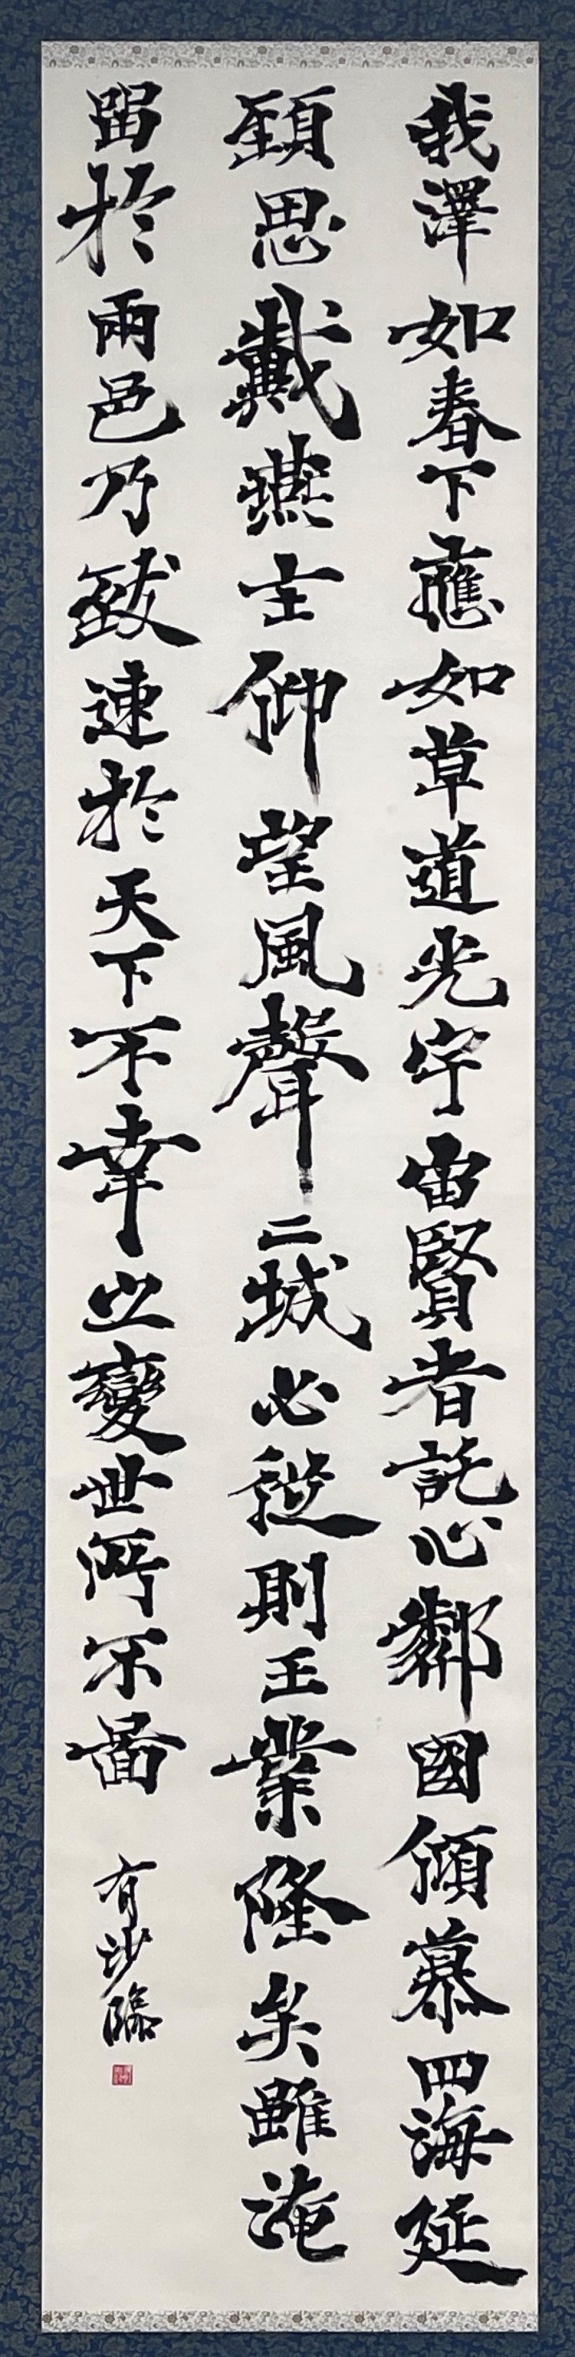 我澤如春下應如草道光宇宙賢者託心鄰國傾慕四海延
頸思戴燕主仰望風聲二城必從則王業隆矣雖淹
留於兩邑乃致速於天下不幸之變世所不圖
有沙臨